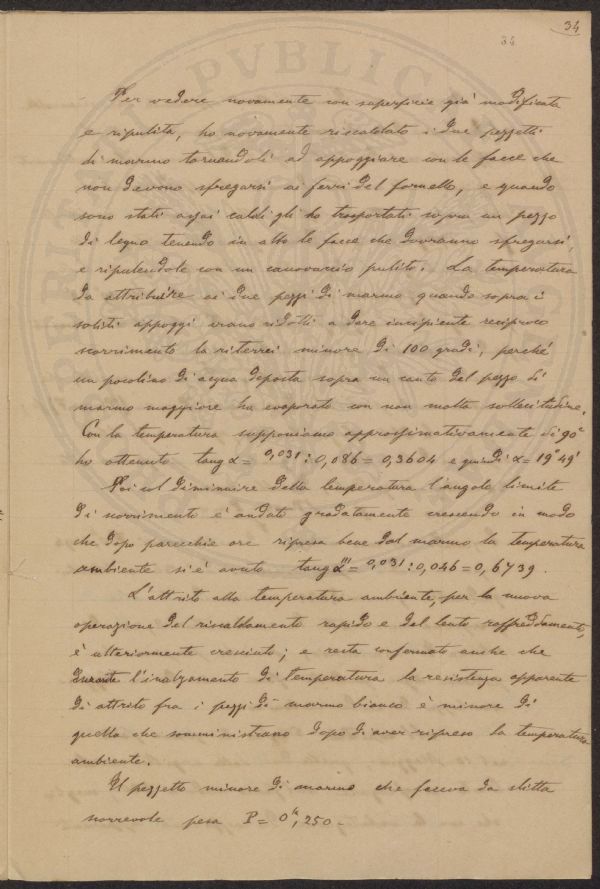 34
34
Per vedere novamente con superficie già modificata
e ripulita, ho novamente riscaldato i due pezzetti
di marmo tornandoli ad appoggiare con le facce che
non devono sfregarsi ai ferri del fornello, e quando
sono stati assai caldi gli ho trasportati sopra un pezzo
di legno tenendo in alto le facce che dovranno sfregarsi,
e ripulendole con un canovaccio pulito. La temperatura
da attribuire ai due pezzi di marmo quando sopra i
soliti appoggi erano ridotti a dare incipiente reciproco
scorrimento la riterrei minore di 100 gradi, perché
un pocolino di acqua deposta sopra un canto del pezzo di
marmo maggiore ha evaporato con non molta sollecitudine.
Con la temperatura supponiamo approssimativamente di 90°
ho ottenuto tang α = 0,031 : 0,086 = 0,3604 e quindi α = 19° 49'
Poi col diminuire della temperatura l'angolo limite
di scorrimento è andato gradatamente crescendo in modo
che dopo parecchie ore ripresa bene dal marmo la temperatura
ambiente si è avuto tang α''' = 0,031 : 0,046 = 0,6739.
L'attrito alla temperatura ambiente, per la nuova
operazione del riscaldamento rapido e del lento raffreddamento,
è ulteriormente cresciuto; e resta confermato anche che
durante l'inalzamento di temperatura la resistenza apparente
di attrito fra i pezzi di marmo bianco è minore di
quella che somministrano dopo di aver ripreso la temperatura
ambiente.
Il pezzetto minore di marmo che faceva da slitta
scorrevole pesa P = 0k,250.
PVBLICA